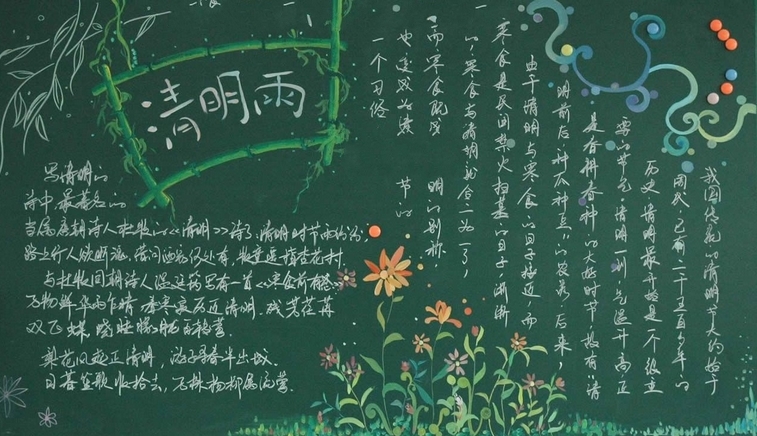 清明雨
我国传统的清明节大约始于
周代,已有二千五百多年的
历史,清明最开始是一个很重
要的节气,清明一到,气温升高,正
是春耕春种的大好时节,故有“清
明前后,种瓜种豆”的农谚。后来,
由于清明与寒食的日子接近,而
寒食是民间禁火扫墓的日子,渐渐
的,寒食与清明就合二为一了,
而寒食既成
明的别称,
也变成为清
节的
一个习俗
写清明的
诗中,最著名的
当属唐朝诗人杜牧的《清明》诗了,清明时节雨纷纷,
路上行人欲断魂。借问酒家何处有,牧童遥指杏花村。
与杜牧同朝诗人温庭筠里有一首
双飞蝶,晓
梨花风起正清明,游子寻春半出城。
日暮笙歌收拾去,万株杨柳属流莺。